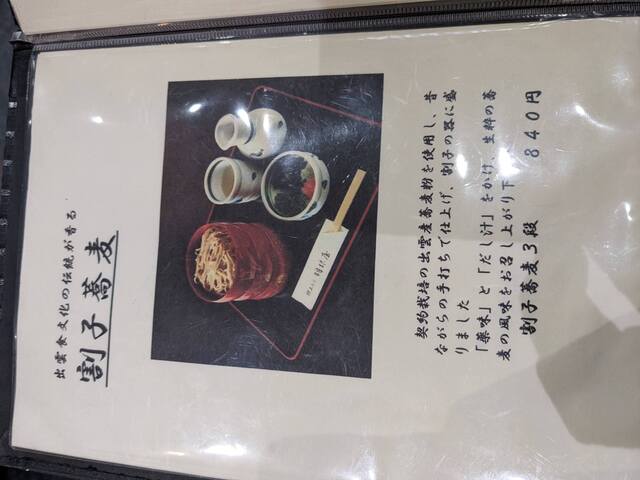 出雲食文化の伝統が香る
割子蕎麦
契約栽培の出雲産蕎麦粉を使用し、昔
ながらの手打ちで仕上げ、割子の器に盛
りました
「薬味」と「だし汁」をかけ、生粋の蕎
麦の風味をお召し上がり下
割子蕎麦3段 840円